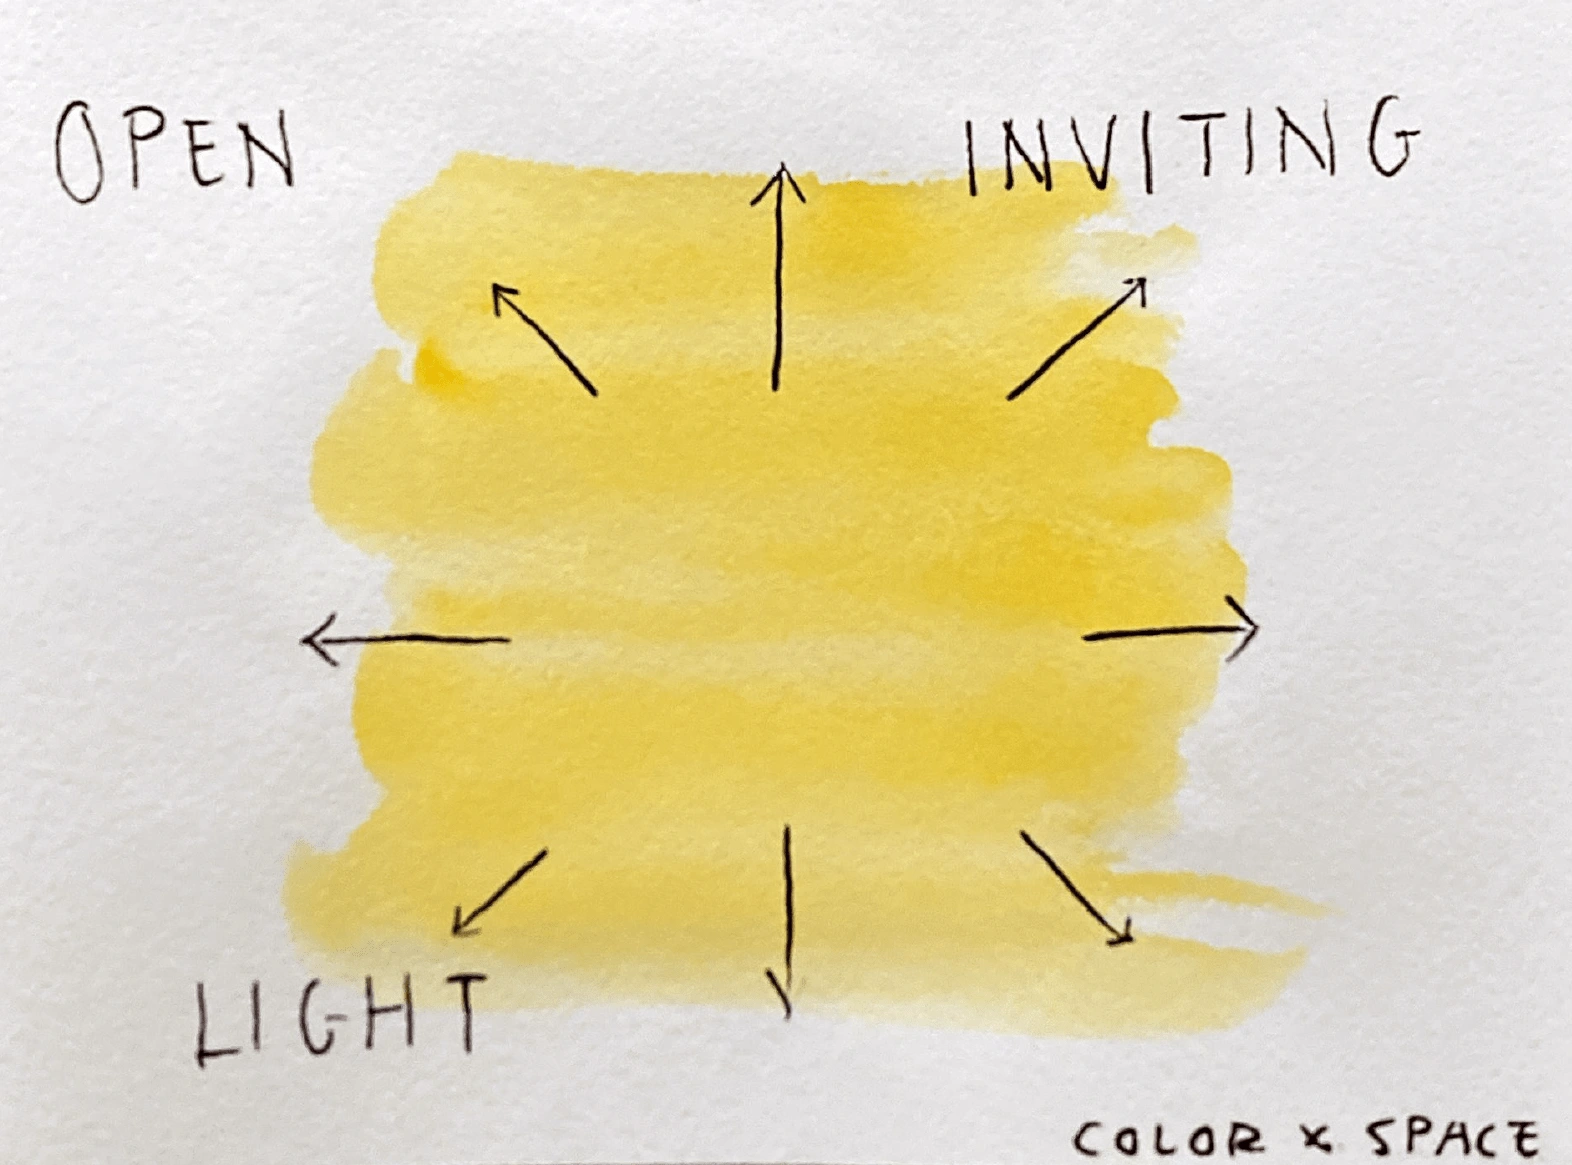 OPEN
INVITING
LIGHT
COLOR x SPACE